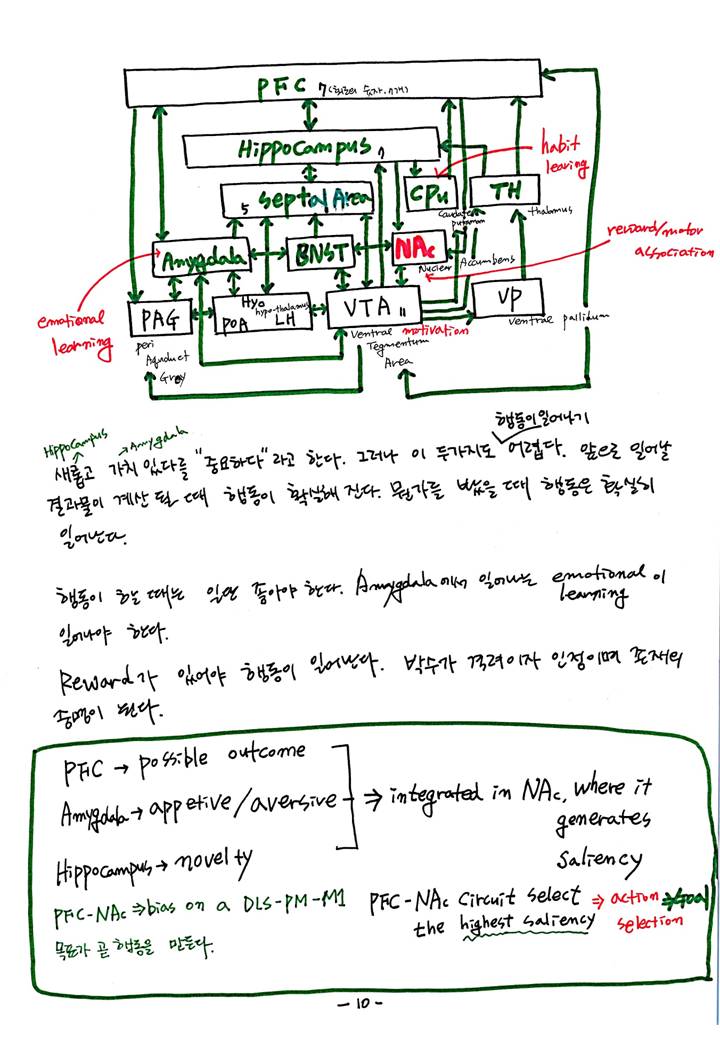 PFC 7
Hippocampus 7
habit
learing
5 septal Area
CPu
TH
Caudate
putamen
thalamus
Amygdala
BNST
NAc
reward/motor
association
Nuclear Accumbens
emotional
learning
PAG
Hyo
hypo-thalamus
POA
LH
VTA 11
VP
peri
Aquduct
Grey
Ventrae motivation
Tegmentum
Area
ventrae pallidum
Hippocampus
Amygdala
행동이 일어나기
새롭고 가치 있다를 "중요하다"라고 한다. 그러나 이 두가지도 어렵다. 앞으로 일어날
결과물이 계산 될 때 행동이 확실해 진다. 뭔가를 봤을 때 행동은 확실히
일어난다.
행동이 할 때는 일단 좋아야 한다. Amygdala에서 일어나는 emotional learning이
일어나야 한다.
Reward가 있어야 행동이 일어난다. 박수가 격려이자 인정이며 존재의
증명이 된다.
PFC → possible outcome
Amygdala → appetive/aversive ⇒ integrated in NAc, where it
generates
saliency
Hippocampus → novelty
PFC-NAc ⇒ bias on a DLS-PM-M1
목표가 곧 행동을 만든다.
PFC-NAc circuit select ⇒ action
the highest saliency selection
- 10 -